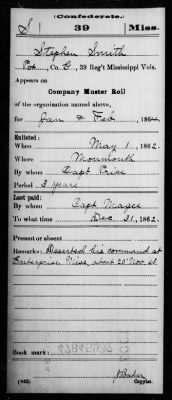 (Confederate.)
S 39 Miss.
Stephen Smith
Co. G, 39 Reg't Mississippi Vols.
Appears on
Company Muster Roll
of the organization named above,
for Jan & Feb, 1864.
Enlisted:
When May 1, 1862.
Where Monmouth
By whom Capt Price
Period 3 years
Last paid:
By whom Capt Magee
To what time Dec. 31, 1862.
Present or absent
Remarks: Deserted his command at
Enterprise Miss. about 20" Nov.
Book mark:
(642) Copyist.